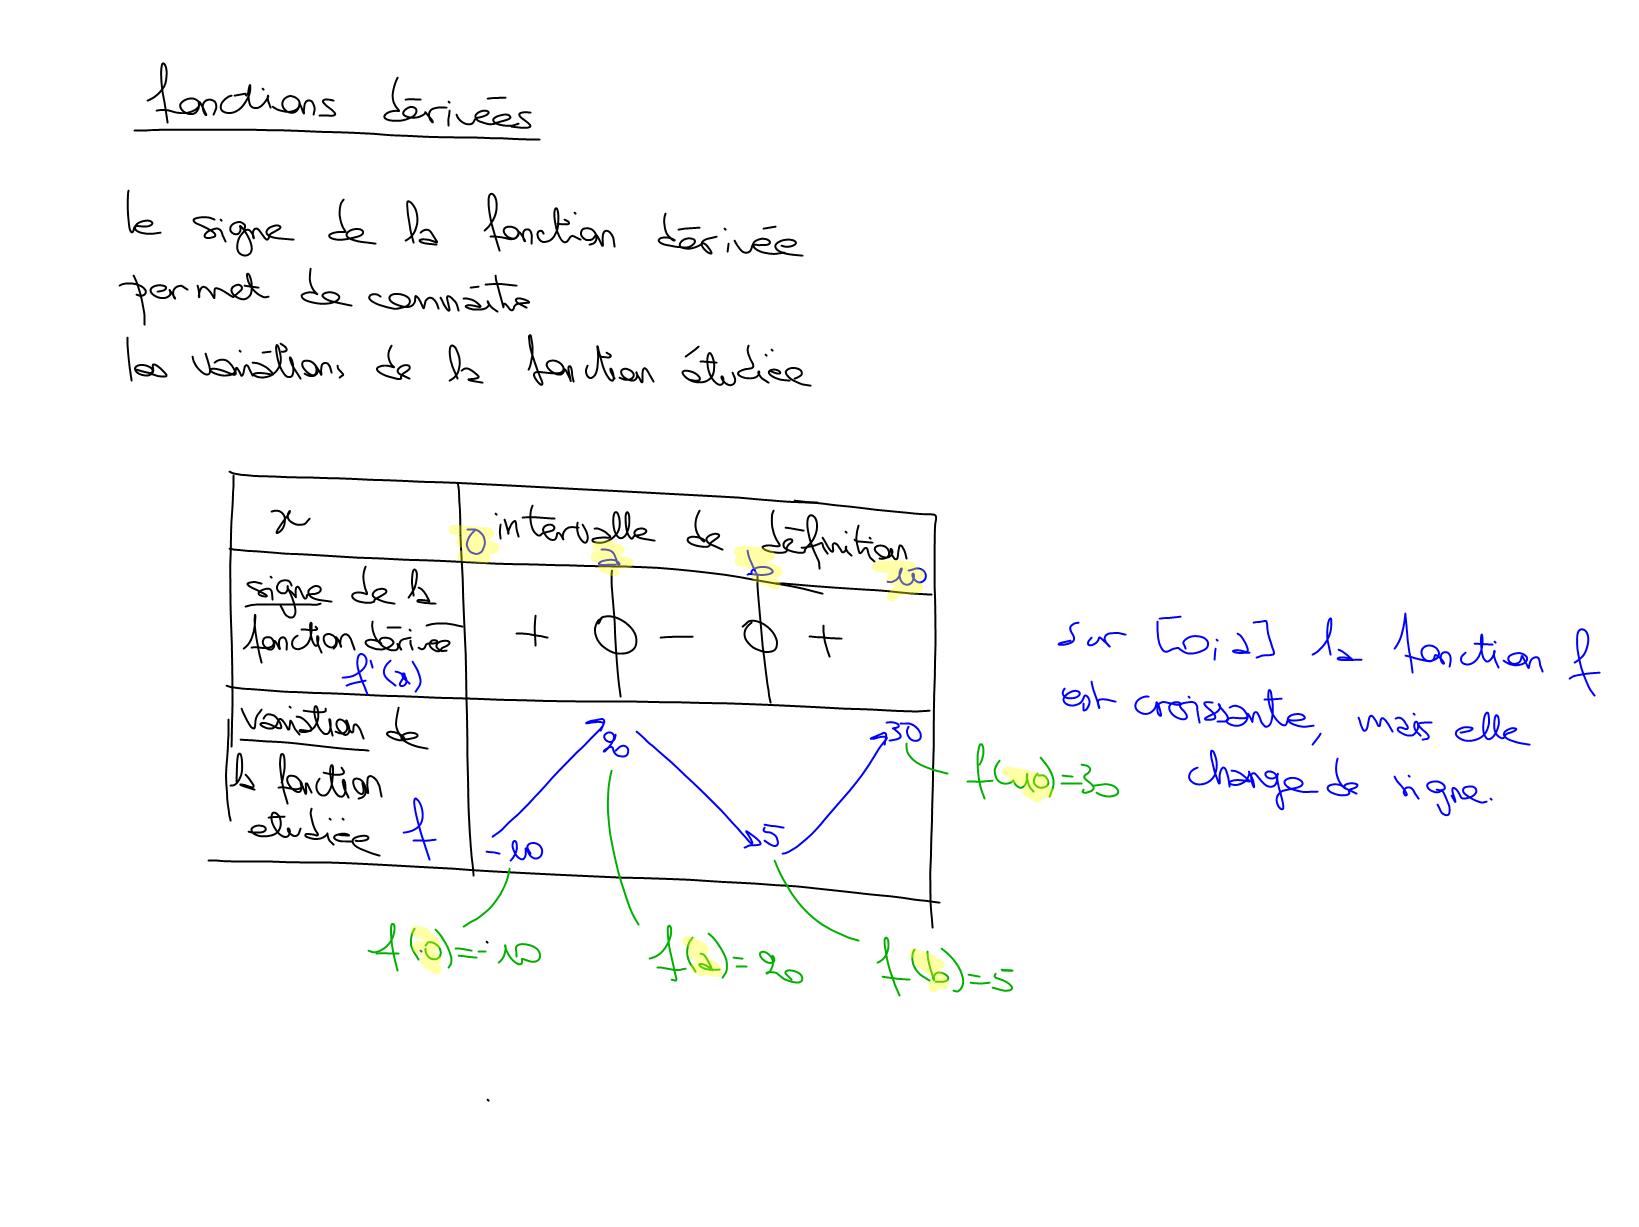 fonctions dérivées
le signe de la fonction dérivée
permet de connaître
les variations de la fonction étudiée
x
intervalle de définition
0 a b 10
signe de la
fonction dérivée
f'(x)
+ 0 - 0 +
variation de
la fonction
etudiée f
-10 20 5 30
f(10)=30
f(0)=-10
f(a)=20
f(b)=5
sur [0;a] la fonction f
est croissante, mais elle
change de signe.